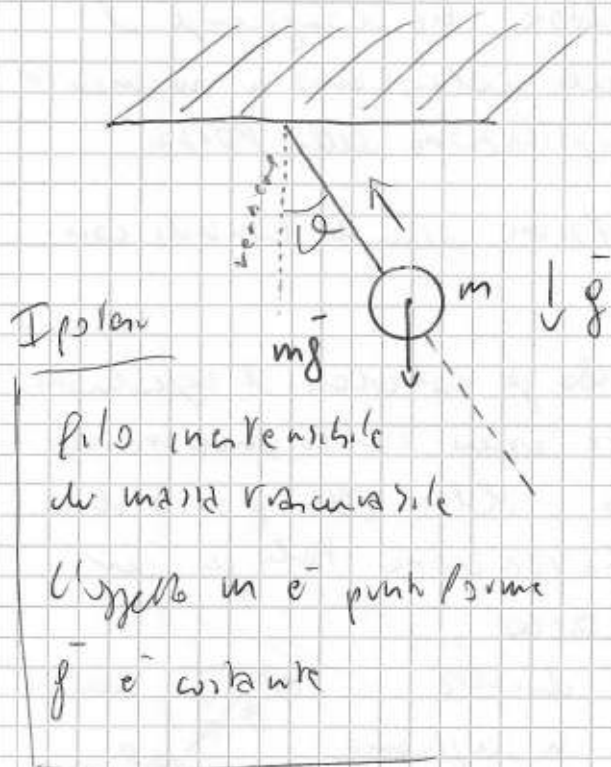 ϑ
m
g̅
mg̅
Ipotesi
filo inestensibile
di massa trascurabile
L'oggetto m è puntiforme
g̅ è costante